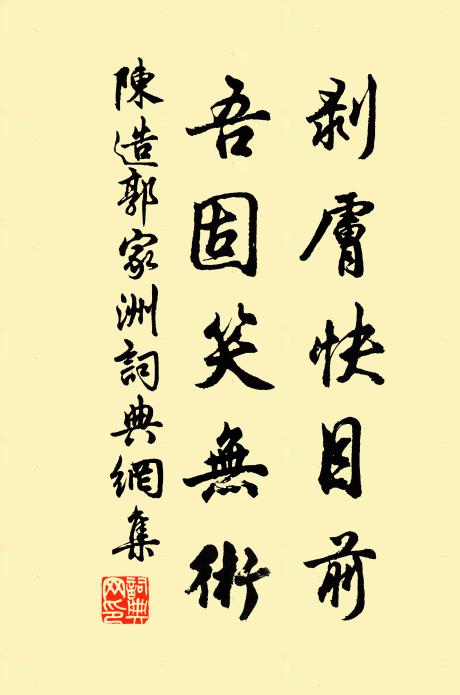 剥膚快目前
吾固笑無術
陳造郭家洲詞典網集
詞典网印